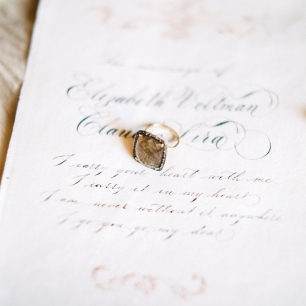 The marriage of
Elizabeth Voltman
Claudio Lira
I carry your heart with me
I carry it in my heart
I am never without it anywhere
I go you go, my dear